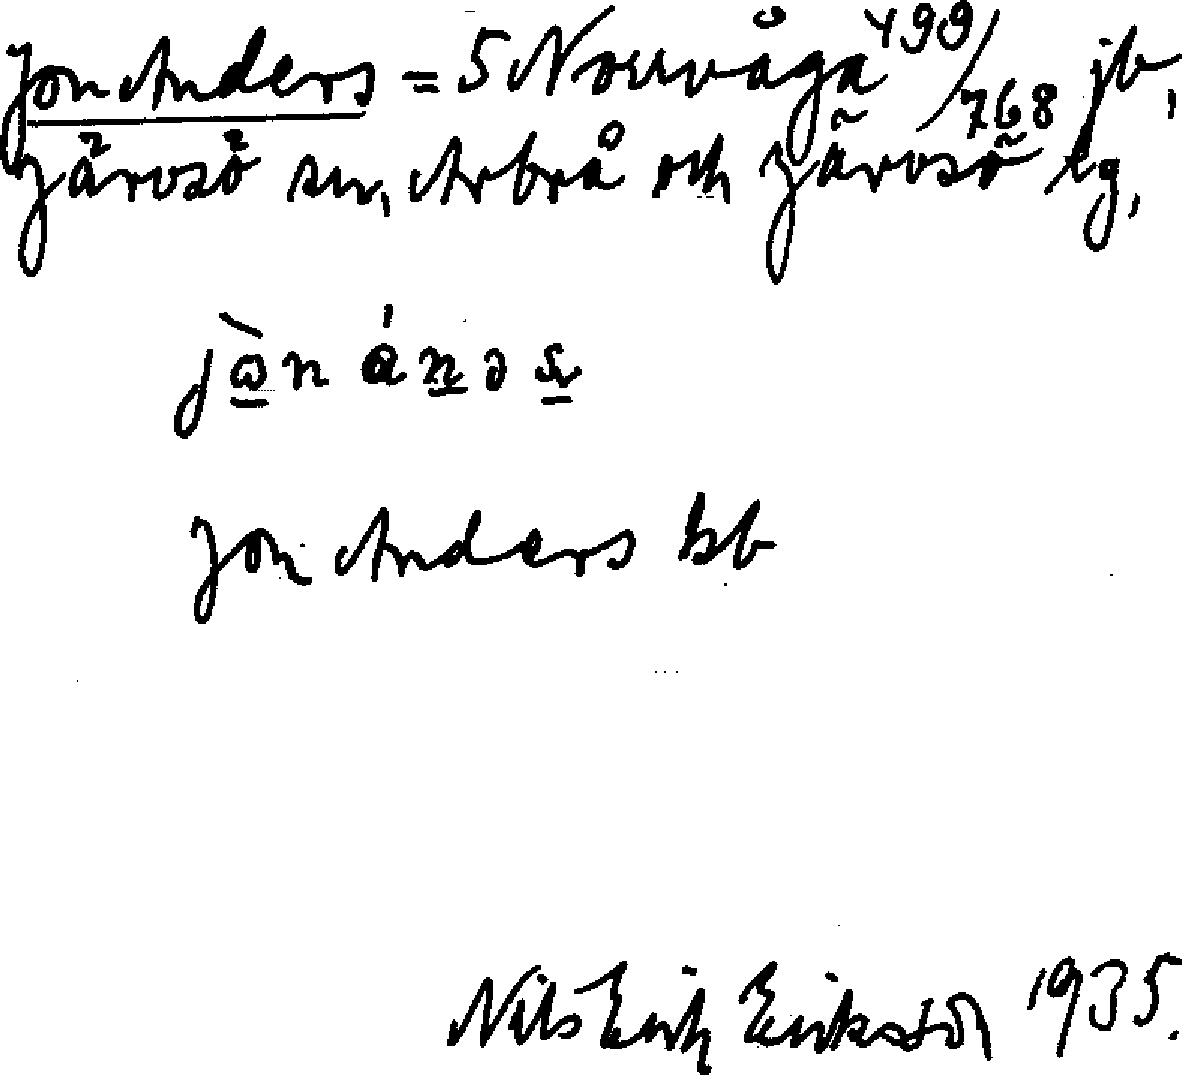 Jon Anders = 5 Norrvåga 499/768 jb,
Järvsö sn, Arbrå och Järvsö tg,
Jon Anders bb
Nils Erik Erikson 1935.